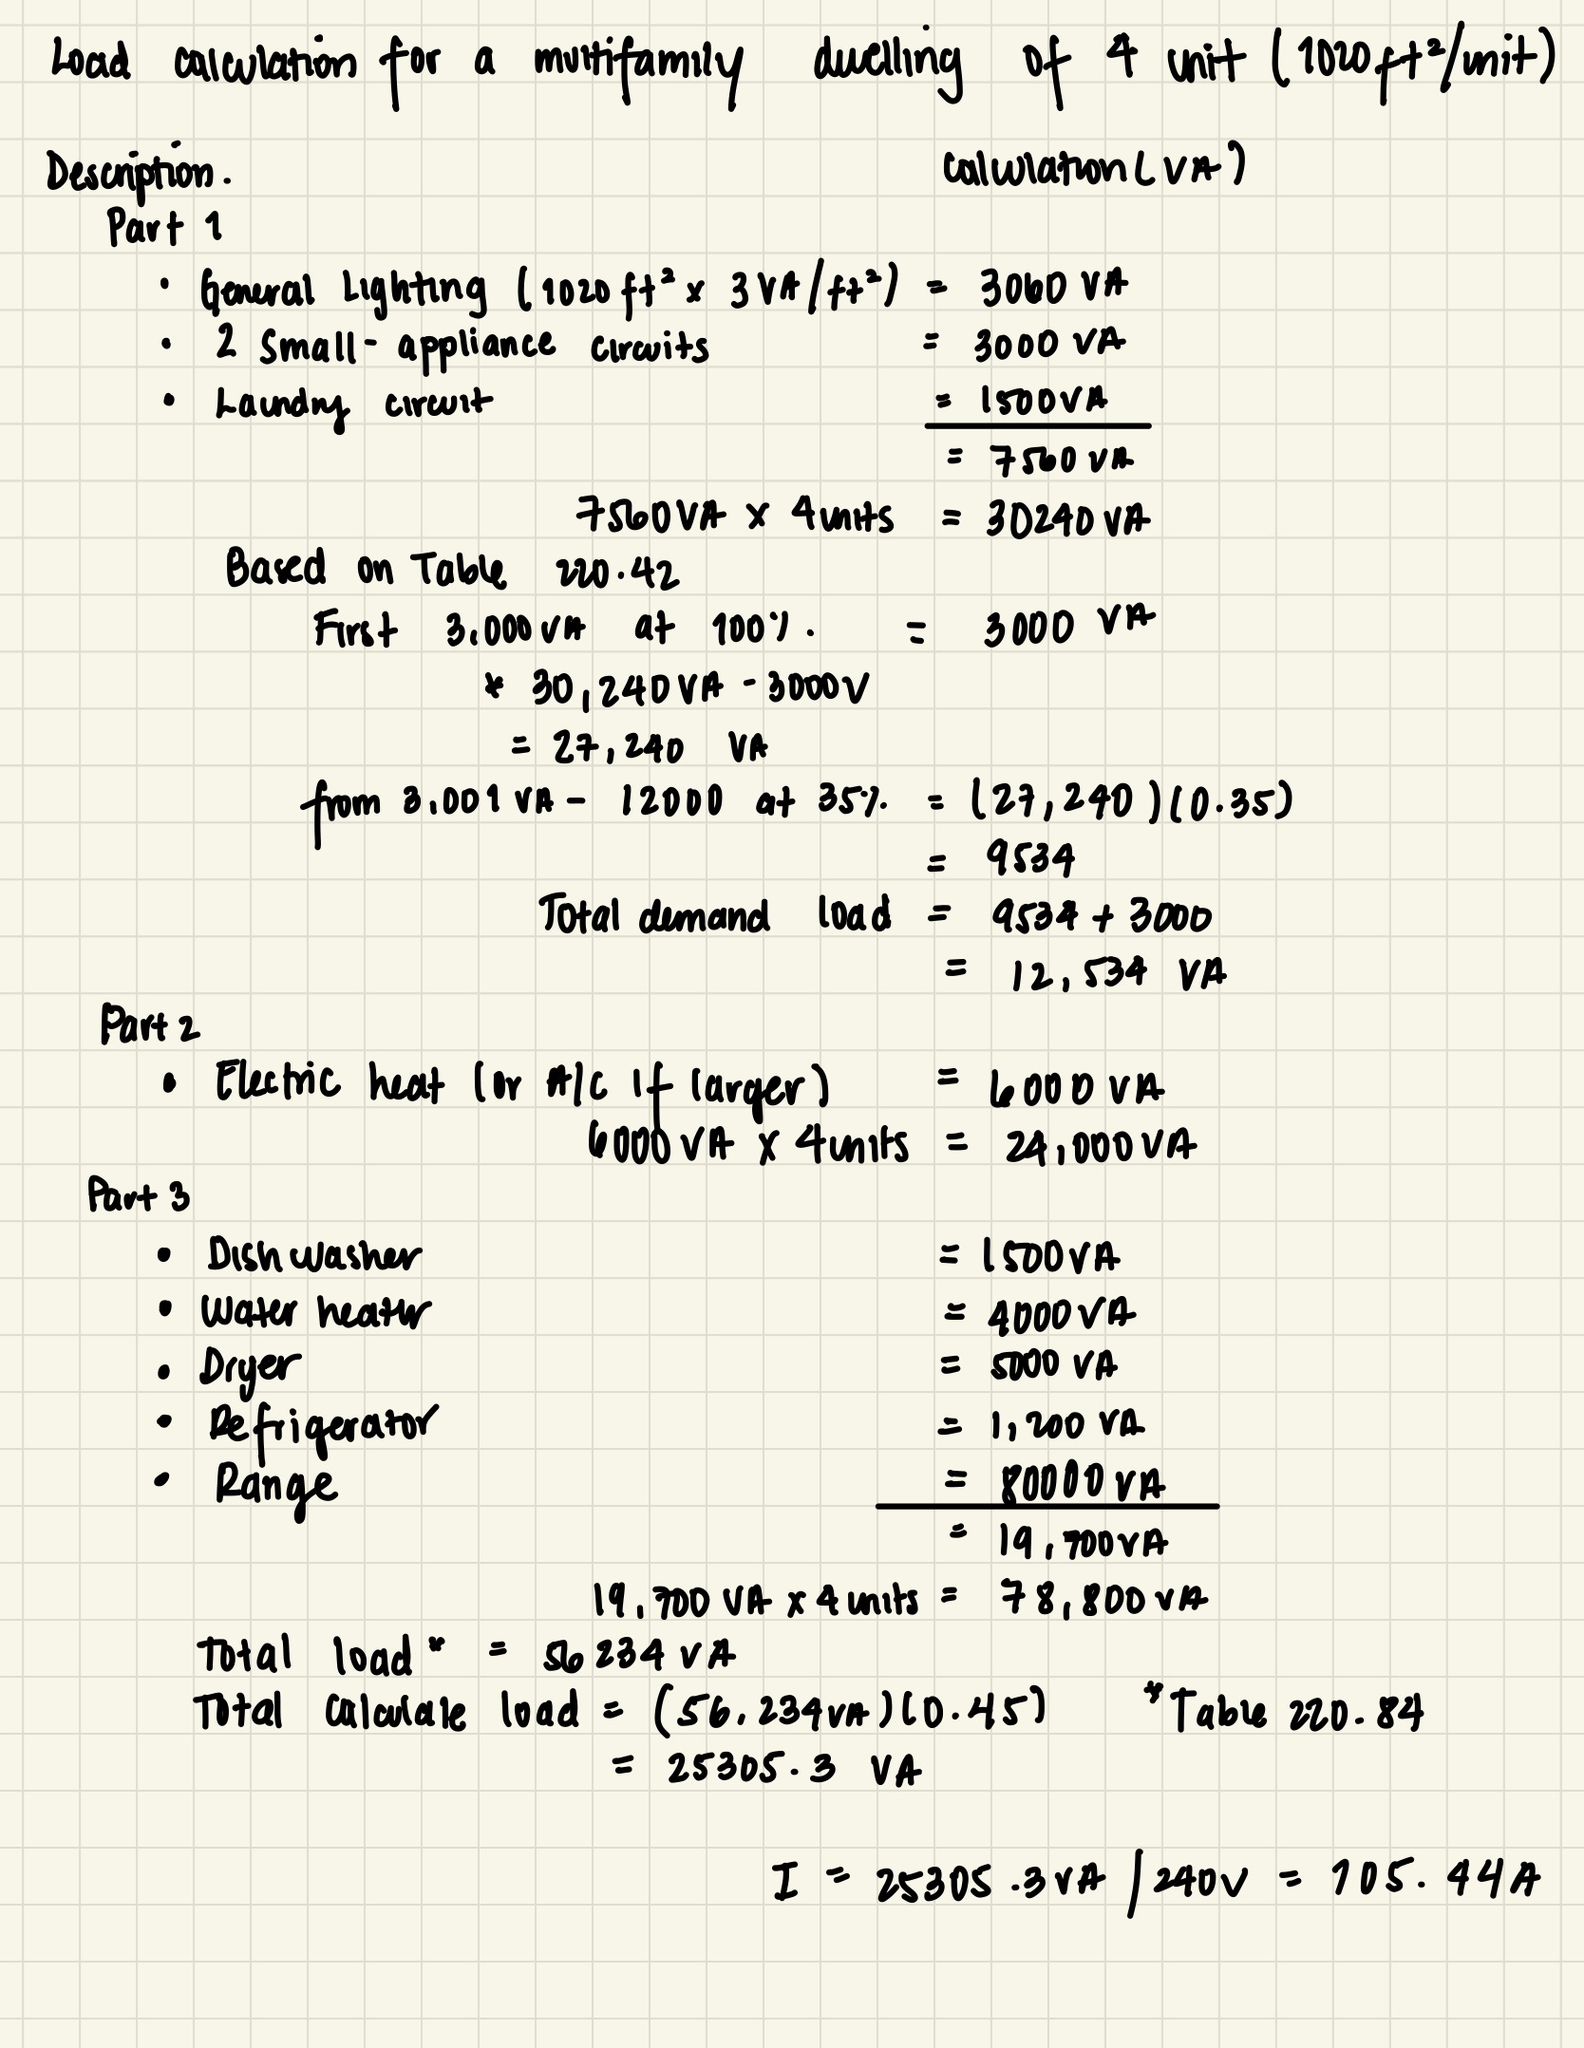 Load calculation for a multifamily dwelling of 4 unit (1020ft²/unit)
Description. Calculation (VA)
Part 1
• General Lighting (1020 ft² x 3 VA/ft²) = 3060 VA
• 2 Small-appliance circuits = 3000 VA
• Laundry circuit = 1500 VA
= 7560 VA
7560 VA x 4 units = 30240 VA
Based on Table 220.42
First 3,000 VA at 100%. = 3000 VA
* 30,240 VA - 3000V
= 27,240 VA
from 3,001 VA - 12000 at 35% = (27,240)(0.35)
= 9534
Total demand load = 9534 + 3000
= 12,534 VA
Part 2
• Electric heat (or A/C if larger) = 6000 VA
6000 VA x 4 units = 24,000 VA
Part 3
• Dish washer = 1500 VA
• Water heater = 4000 VA
• Dryer = 5000 VA
• Refrigerator = 1,200 VA
• Range = 80000 VA
= 19,700 VA
19,700 VA x 4 units = 78,800 VA
Total load* = 56234 VA
Total Calculate load = (56,234 VA)(0.45) *Table 220.84
= 25305.3 VA
I = 25305.3 VA / 240V = 105.44A